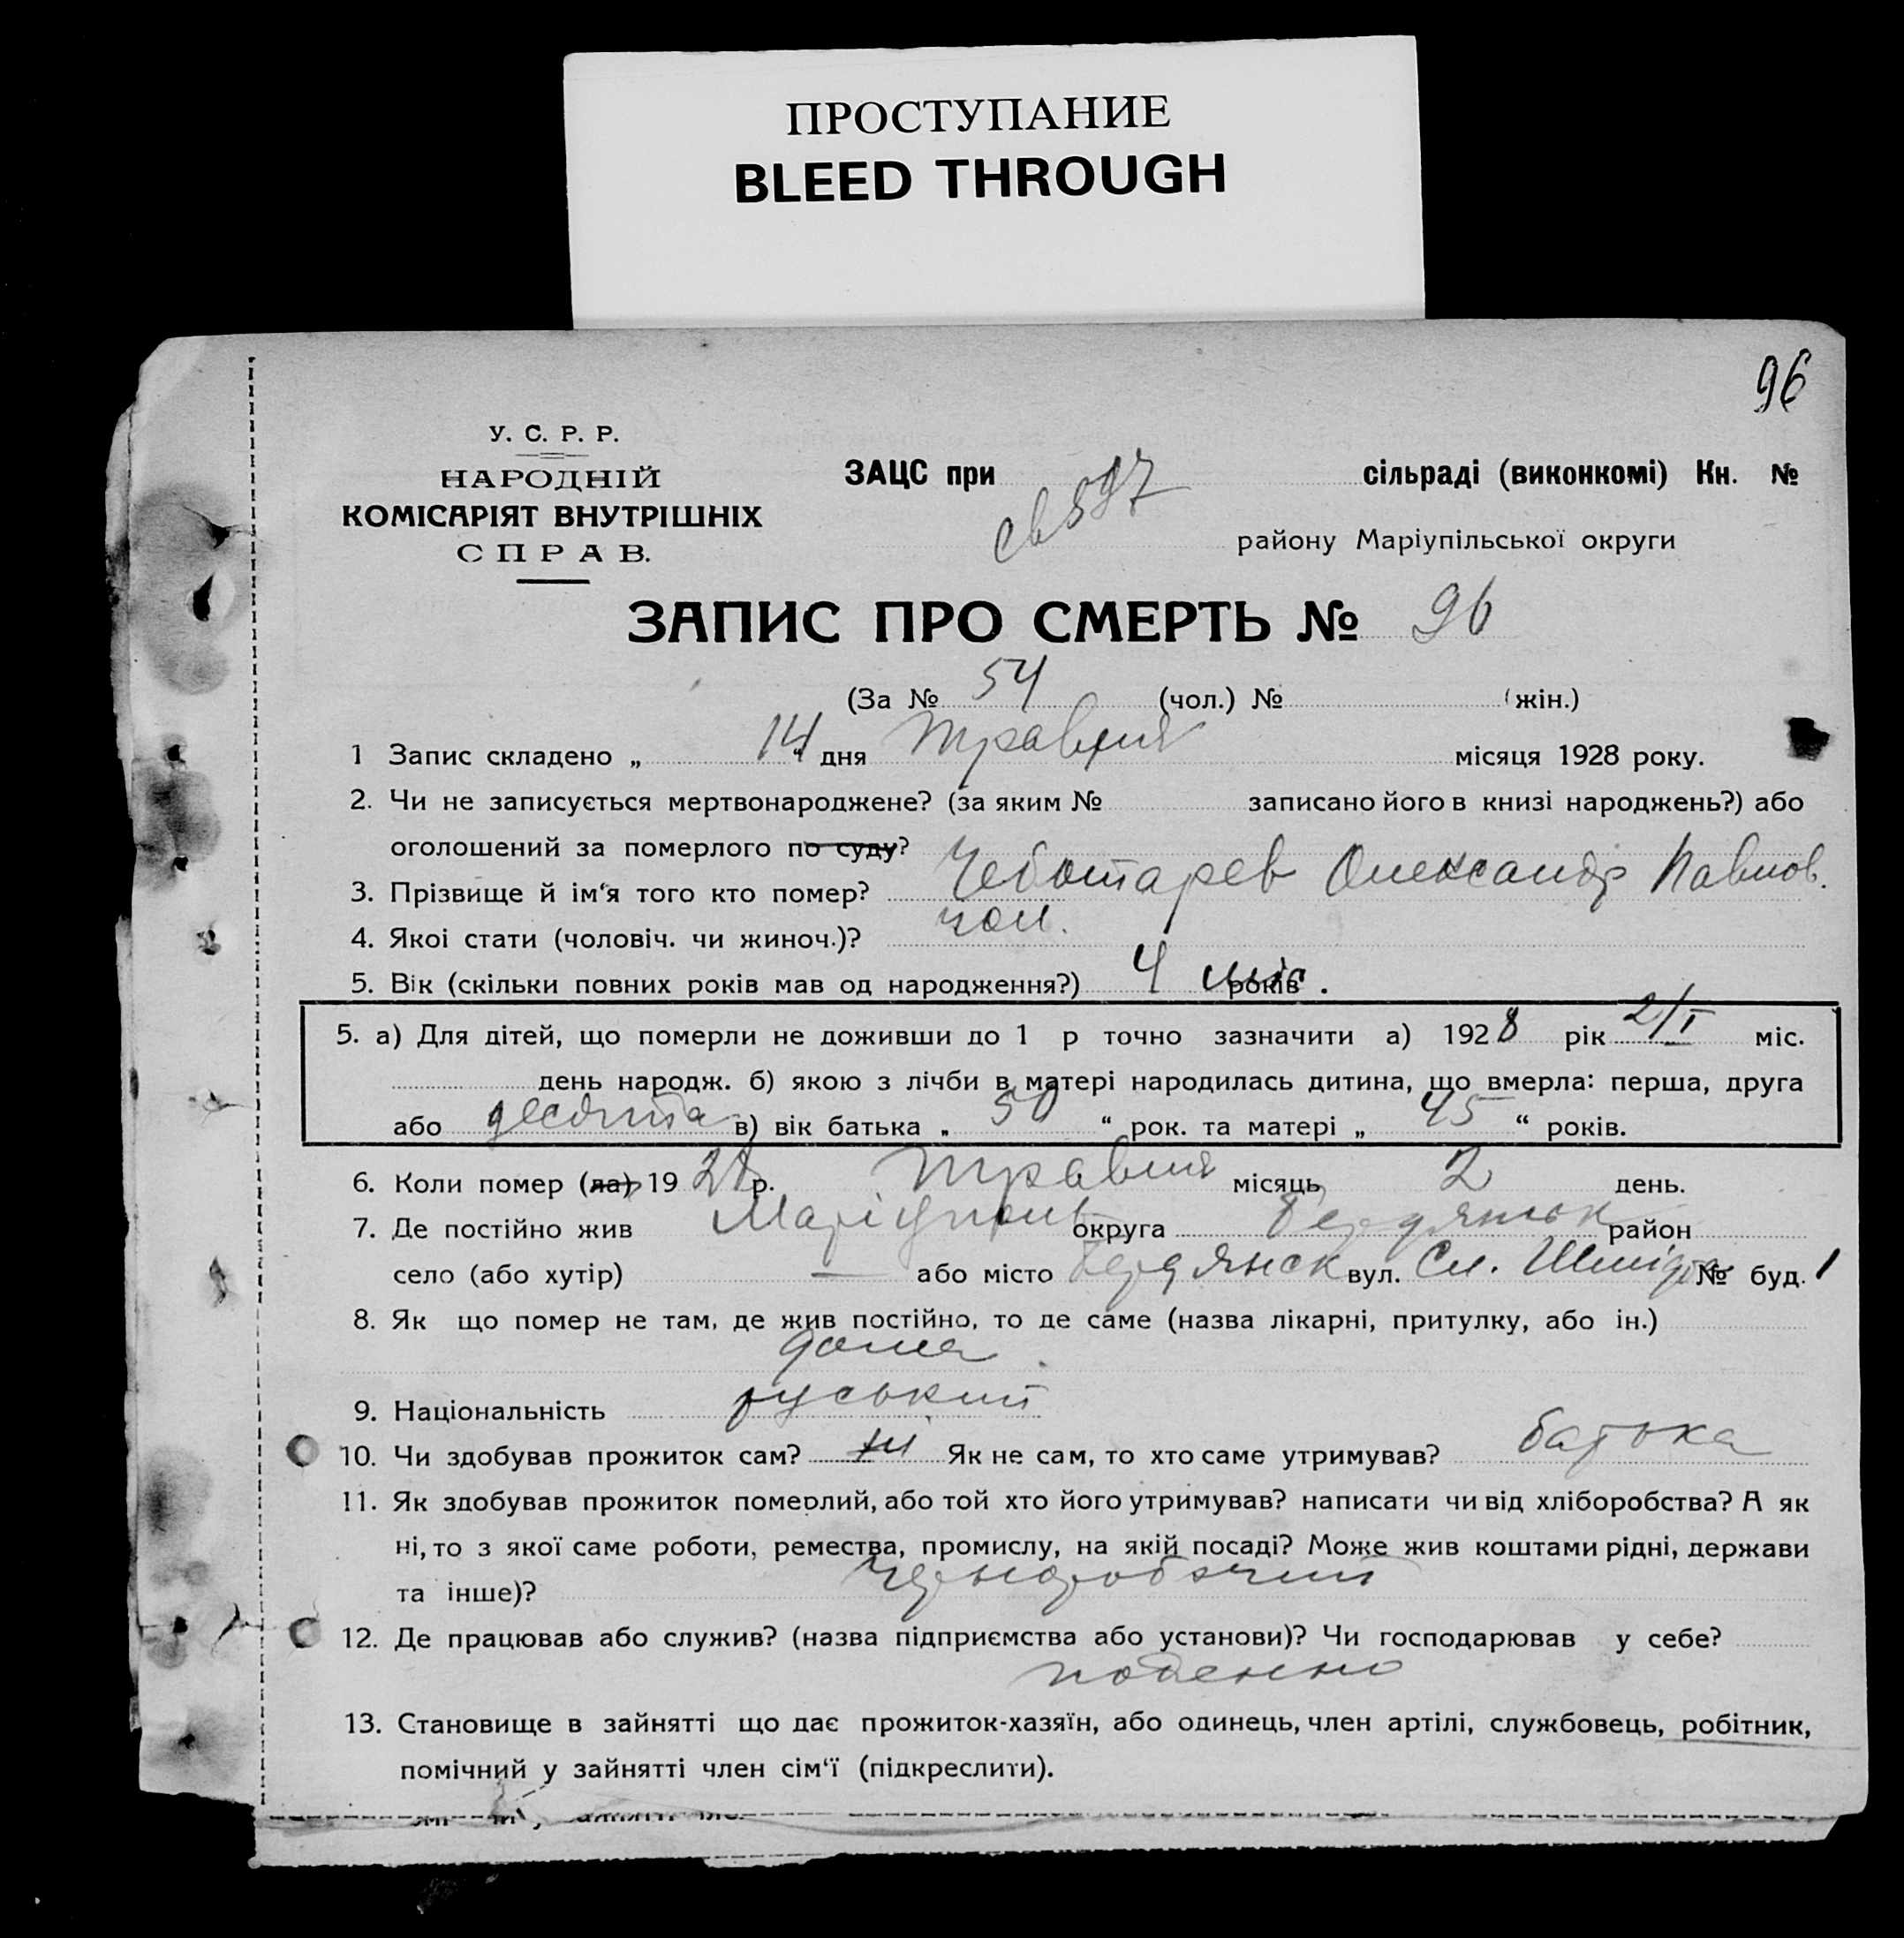 ПРОСТУПАНИЕ
BLEED THROUGH
96
У. С. Р. Р.
НАРОДНІЙ
КОМІСАРІЯТ ВНУТРІШНІХ
СПРАВ.
ЗАЦС при сільраді (виконкомі) Кн. №
району Маріупільської округи
ЗАПИС ПРО СМЕРТЬ № 96
(За № 54 (чол.) № (жін.)
1 Запис складено „ 14 " дня травня місяця 1928 року.
2. Чи не записується мертвонароджене? (за яким № записано його в книзі народжень?) або
оголошений за померлого по суду?
3. Прізвище й ім'я того кто помер? Чеботарев Олександр Павлов.
4. Якоі стати (чоловіч. чи жиноч.)? чол.
5. Вік (скільки повних років мав од народження?) 4 міс років.
5. а) Для дітей, що померли не доживши до 1 р точно зазначити а) 1928 рік 2/I міс.
день народж. б) якою з лічби в матері народилась дитина, що вмерла: перша, друга
або десята в) вік батька „ 50 " рок. та матері „ 45 " років.
6. Коли помер (ла) 1928 р. травня місяць 2 день.
7. Де постійно жив Маріуполь округа Бердянськ район
село (або хутір) — або місто Бердянск вул. Сл. Шмідта № буд. 1
8. Як що помер не там, де жив постійно, то де саме (назва лікарні, притулку, або ін.)
дома
9. Національність руський
10. Чи здобував прожиток сам? ні Як не сам, то хто саме утримував? батька
11. Як здобував прожиток померлий, або той хто його утримував? написати чи від хліборобства? А як
ні, то з якої саме роботи, ремества, промислу, на якій посаді? Може жив коштами рідні, держави
та інше)? черноробочий
12. Де працював або служив? (назва підприємства або установи)? Чи господарював у себе?
поденно
13. Становище в зайнятті що дає прожиток-хазяїн, або одинець, член артілі, службовець, робітник,
помічний у зайнятті член сім'ї (підкреслити).